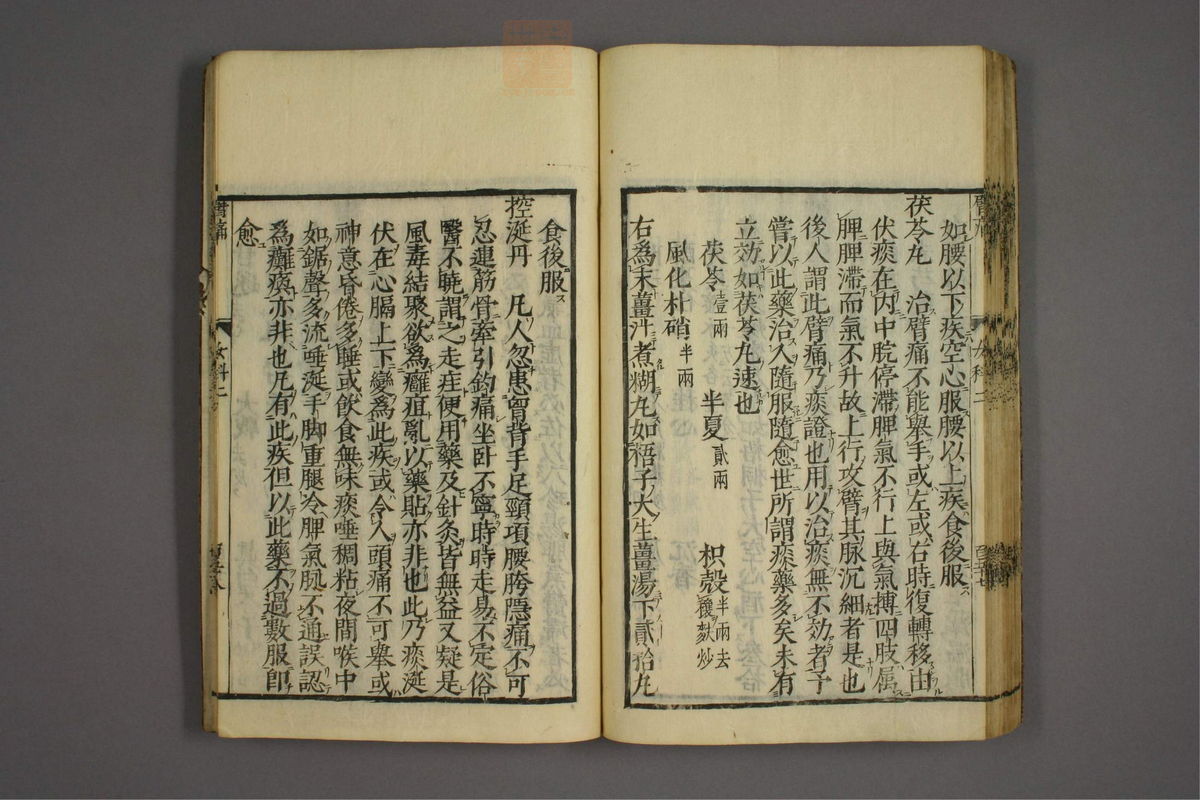 如腰以下疾空心服腰以上疾食後服
茯苓丸　治臂痛不能舉手或左或右時復轉移由
伏痰在内中脘停滯脾氣不行上與氣搏四肢属
脾脾滯而氣不升故上行攻臂其脉沉細者是也
後人謂此臂痛乃痰證也用以治痰無不効者予
嘗以此藥治人隨服隨愈世所謂痰藥多矣未有
立効如茯苓丸速也
茯苓壹兩　半夏貳兩　枳殼半兩去穰麩炒
風化朴硝半兩
右為末薑汁煮糊丸如梧子大生薑湯下貳拾丸
臂痛　女科二
食後服
控涎丹　凡人忽患胷背手足頸項腰胯隱痛不可
忍連筋骨牽引釣痛坐卧不寧時時走易不定俗
醫不曉謂之走疰便用藥及針灸皆無益又疑是
風毒結聚欲為癰疽亂以藥貼亦非也此乃痰涎
伏在心膈上下變為此疾或令人頭痛不可舉或
神意昏倦多睡或飲食無味痰唾稠粘夜間喉中
如鋸聲多流唾涎手脚重腿冷脾氣脉不通誤認
為癱瘓亦非也凡有此疾但以此藥不過數服即
愈
臂痛　女科二